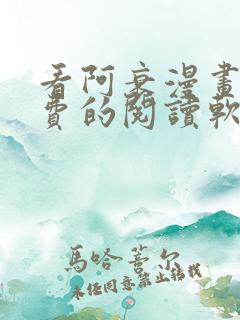 看阿衰漫畫
費的閱讀軟
馬哈蒼尔
未经同意禁止转载